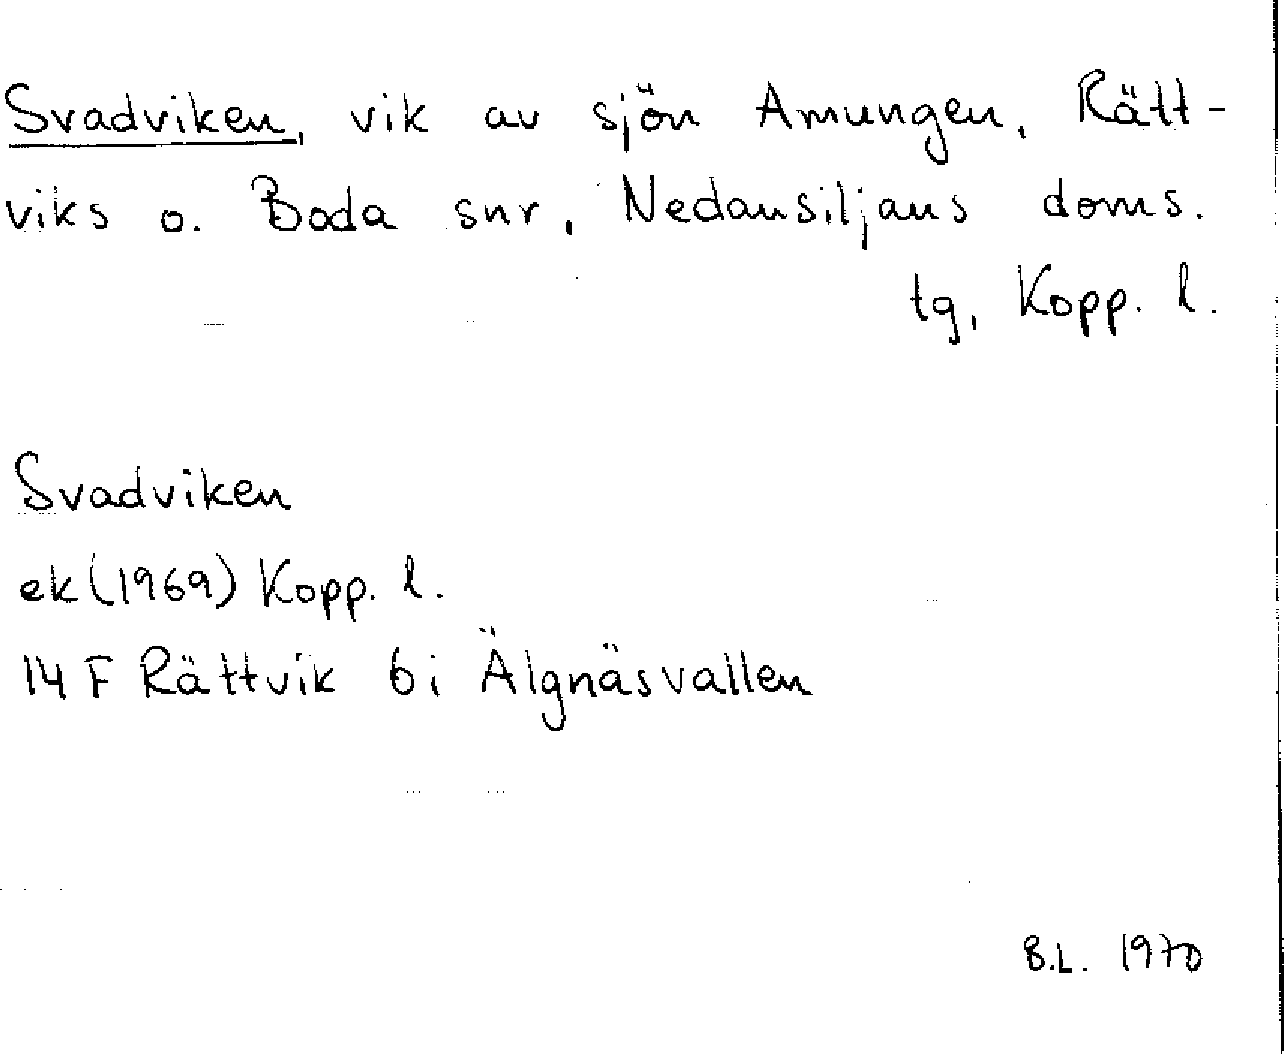 Svadviken, vik av sjön Amungen, Rätt-
viks o. Boda snr, Nedansiljans doms.
tg, Kopp. l.
Svadviken
ek (1969) Kopp. l.
14 F Rättvik 6i Älgnäsvallen
B.L. 1970